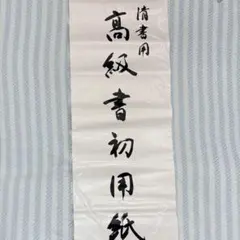 清書用
高級書初用紙